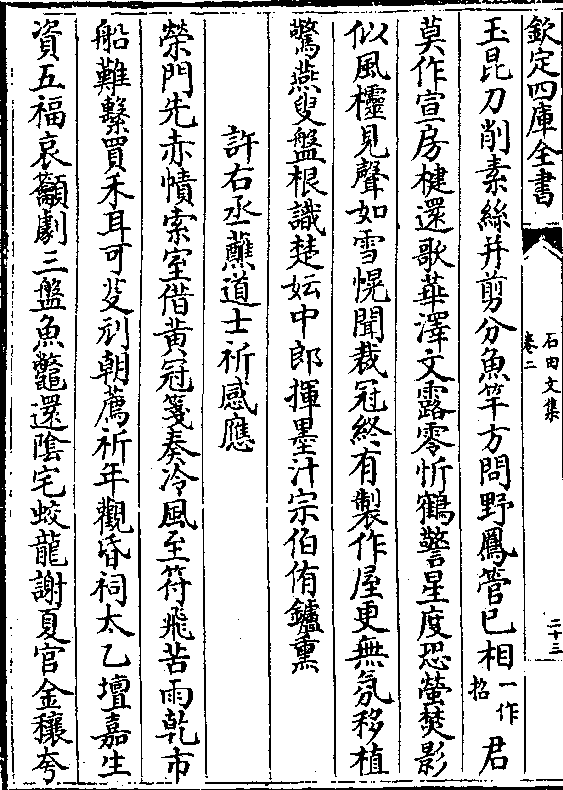 欽定四庫全書
石田文集
卷二
二十三
玉昆刀削素絲并剪分魚竿方問野鳳管已相一作招君
莫作宣房楗還歌華澤文露零忻鶴警星度恐螢焚影
似風櫺見聲如雪幌聞裁冠終有製作屋更無氛移植
驚燕叟盤根識楚妘中郎揮墨汁宗伯侑鑪熏
許右丞蘸道士祈感應
榮門先赤幘索室借黄冠箋奏泠風至符飛苦雨乾市
船難繫買禾耳可芟刋朝薦祈年觀昏祠太乙壇嘉生
資五福哀籲劇三盤魚鼈還陰宅蛟龍謝夏官金穰夸